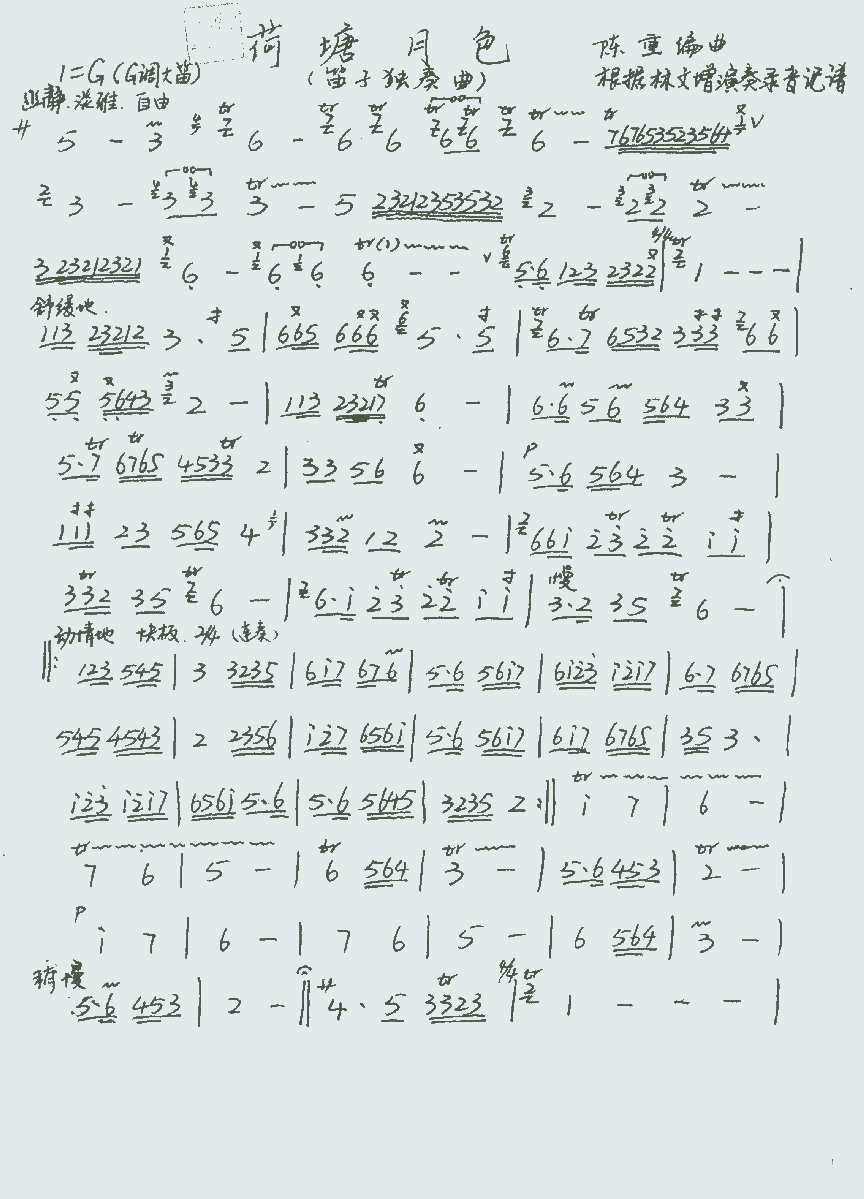 荷塘月色
陈重编曲
1=G(G调大笛)
(笛子独奏曲)
根据林文增演奏录音记谱
幽静.淡雅.自由
5 - 3 6 - 6 6 6 6 6 - 767653523564
3 - 3 3 3 - 5 23212353532 2 - 2 2 2 -
3 23212321 6 - 6 6 6 - - 5·6 123 2322 | 1 - - - |
舒缓地.
113 23212 3 · 5 | 665 666 5 · 5 | 6·7 6532 333 66 |
55 5643 2 - | 113 23217 6 - | 6·6 56 564 33 |
5·7 6765 4533 2 | 33 56 6 - | P 5·6 564 3 - |
111 23 565 4 | 332 12 2 - | 66i 2322 i i |
332 35 6 - | 6·i 23 22 i i | 慢 3·2 35 6 - |
动情地 快板.2/4(连奏)
‖: 123 545 | 3 3235 | 6i7 676 | 5·6 56i7 | 6i23 i2i7 | 6·7 6765 |
545 4543 | 2 2356 | i27 656i | 5·6 56i7 | 6i7 6765 | 35 3 · |
i23 i2i7 | 656i 5·6 | 5·6 5645 | 3235 2 :‖ tr i 7 | 6 - |
tr 7 6 | 5 - | tr 6 564 | tr 3 - | 5·6 453 | tr 2 - |
P i 7 | 6 - | 7 6 | 5 - | 6 564 | 3 - |
稍慢
5·6 453 | 2 - ‖ 4 · 5 3323 | 4/4 1 - - - |